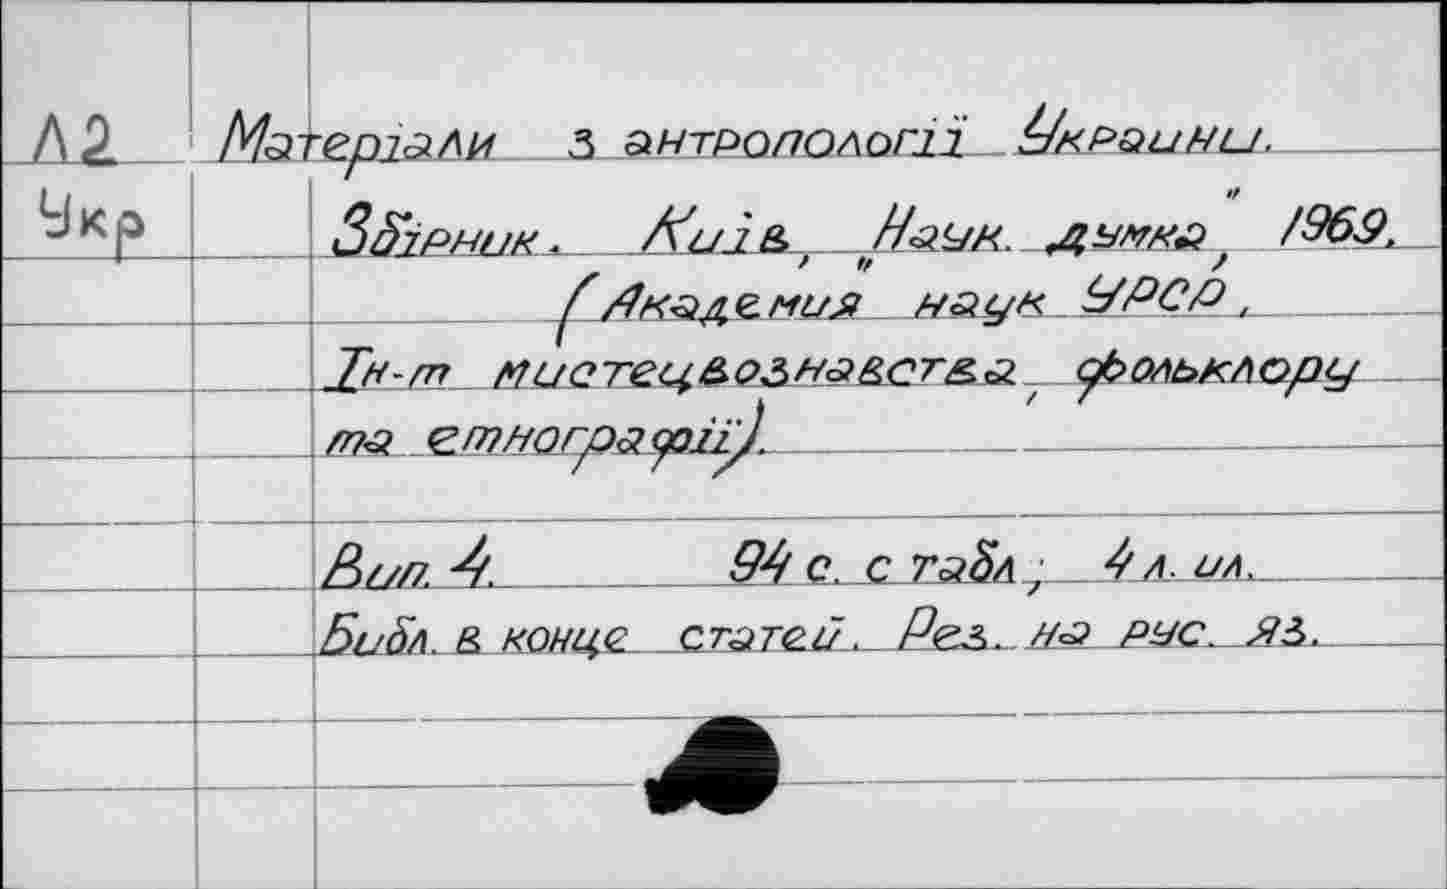 Л2 Матеріали з антропології Украини.
Укр Збірник. Київ, „Наук. думка", 1969.
(Академия наук УРСР,
Ін-т мистецвознавства, фольклору
та етнографії).
Вип. 4. 94 с. с табл; 4 л. ил.
Библ. в конце статей. Рез. на рус. яз.